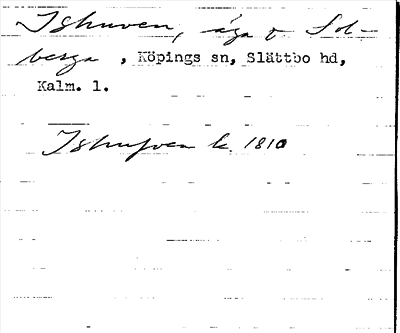 Ishuven, äga t. Sol-
berga, Köpings sn, Slättbo hd,
Kalm. l.
Ishufven k. 1810